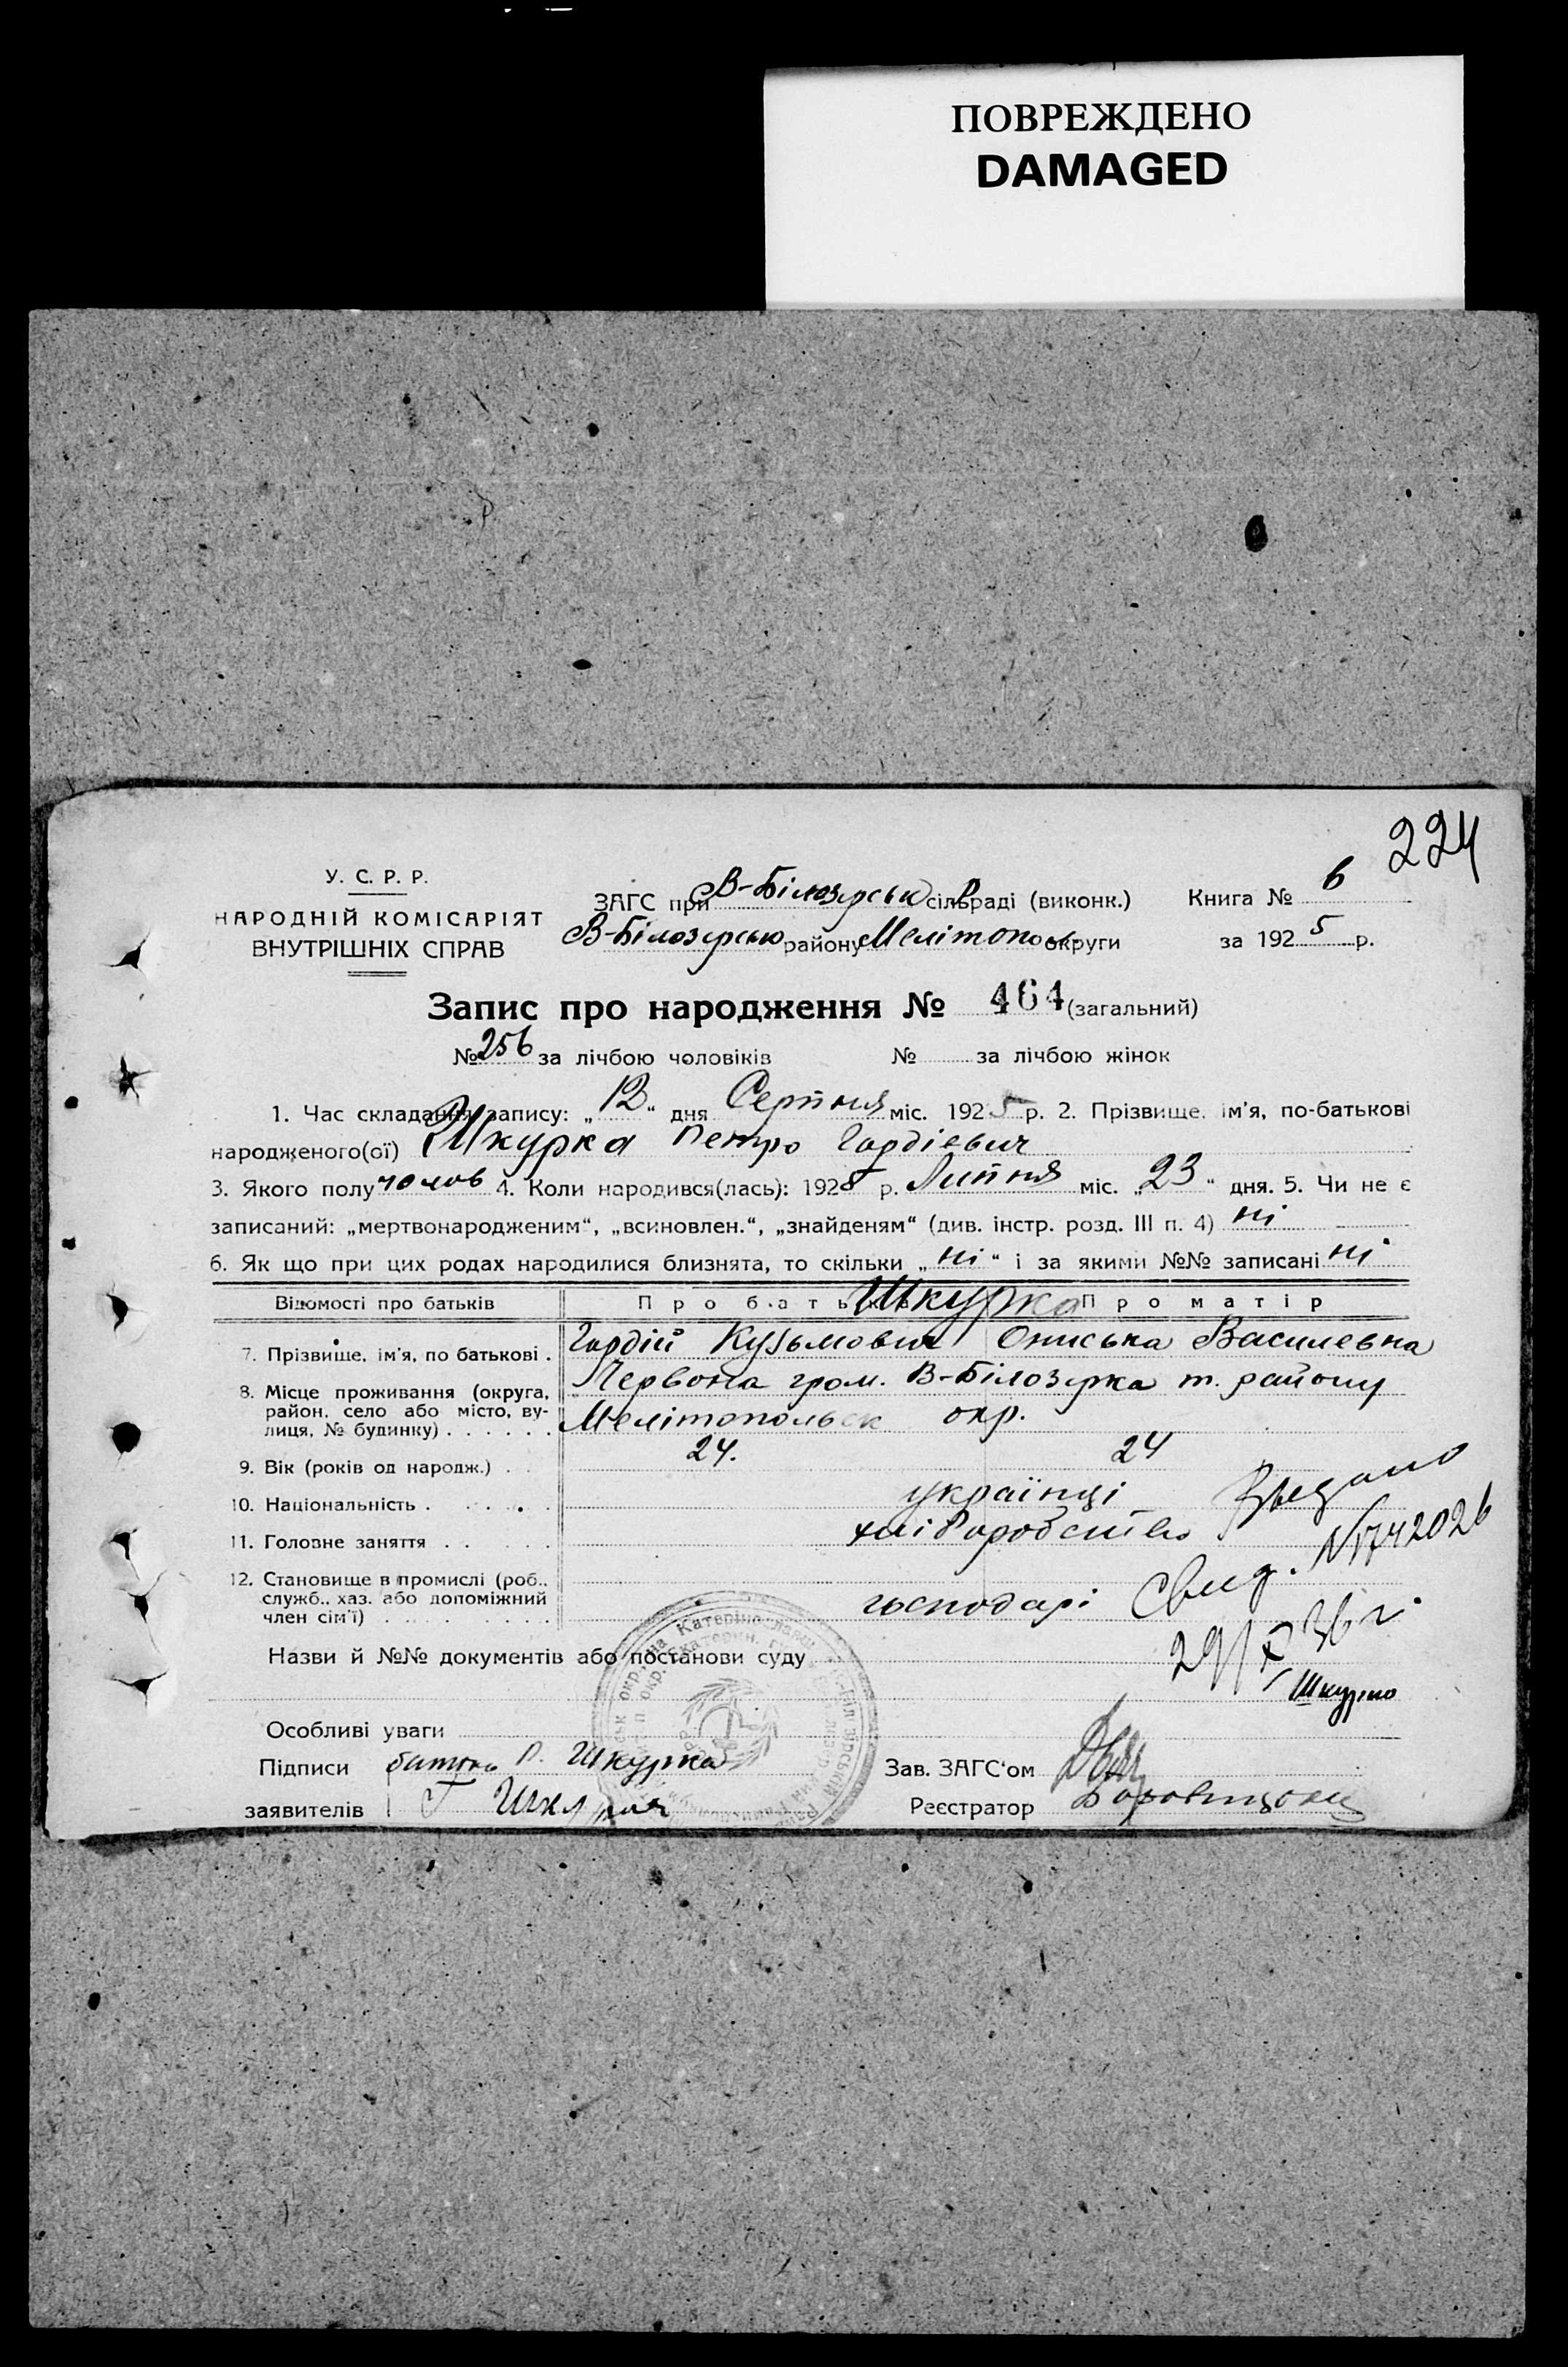 ПОВРЕЖДЕНО
DAMAGED
224
У. С. Р. Р.
НАРОДНІЙ КОМІСАРІЯТ
ВНУТРІШНІХ СПРАВ
ЗАГС при В-Білозерськ сільраді (виконк.)
В-Білозерсько району Мелітополь округи
Книга № 6
за 1925 р.
Запис про народження № 464 (загальний)
№ 256 за лічбою чоловіків № за лічбою жінок
1. Час складання запису: „12“ дня Серпня міс. 1925 р. 2. Прізвище, ім'я, по-батькові
народженого(ої) Шкурка Петро Гордієвич
3. Якого полу чолов 4. Коли народився(лась): 1925 р. Липня міс. „23“ дня. 5. Чи не є
записаний: „мертвонародженим“, „всиновлен.“, „знайденям“ (див. інстр. розд. III п. 4) ні
6. Як що при цих родах народилися близнята, то скільки „ні“ і за якими №№ записані ні
Відомості про батьків Про батька Шкурка Про матір
7. Прізвище, ім'я, по батькові . Гордій Кузьмович Ониська Василевна
8. Місце проживання (округа, район, село або місто, вулиця, № будинку) Червона гром. В-Білозерка т. району
Мелітопольськ окр.
9. Вік (років од народж.) . . 24. 24
10. Національність . . . . . українці
11. Головне заняття . . . . хліборобство
12. Становище в промислі (роб., служб., хаз. або допоміжний член сім'ї) господарі
Свид. №742026
29/X 36 г.
Шкурко
Назви й №№ документів або постанови суду
Особливі уваги
Підписи батько П. Шкурка
заявителів Г
Зав. ЗАГС'ом
Реєстратор